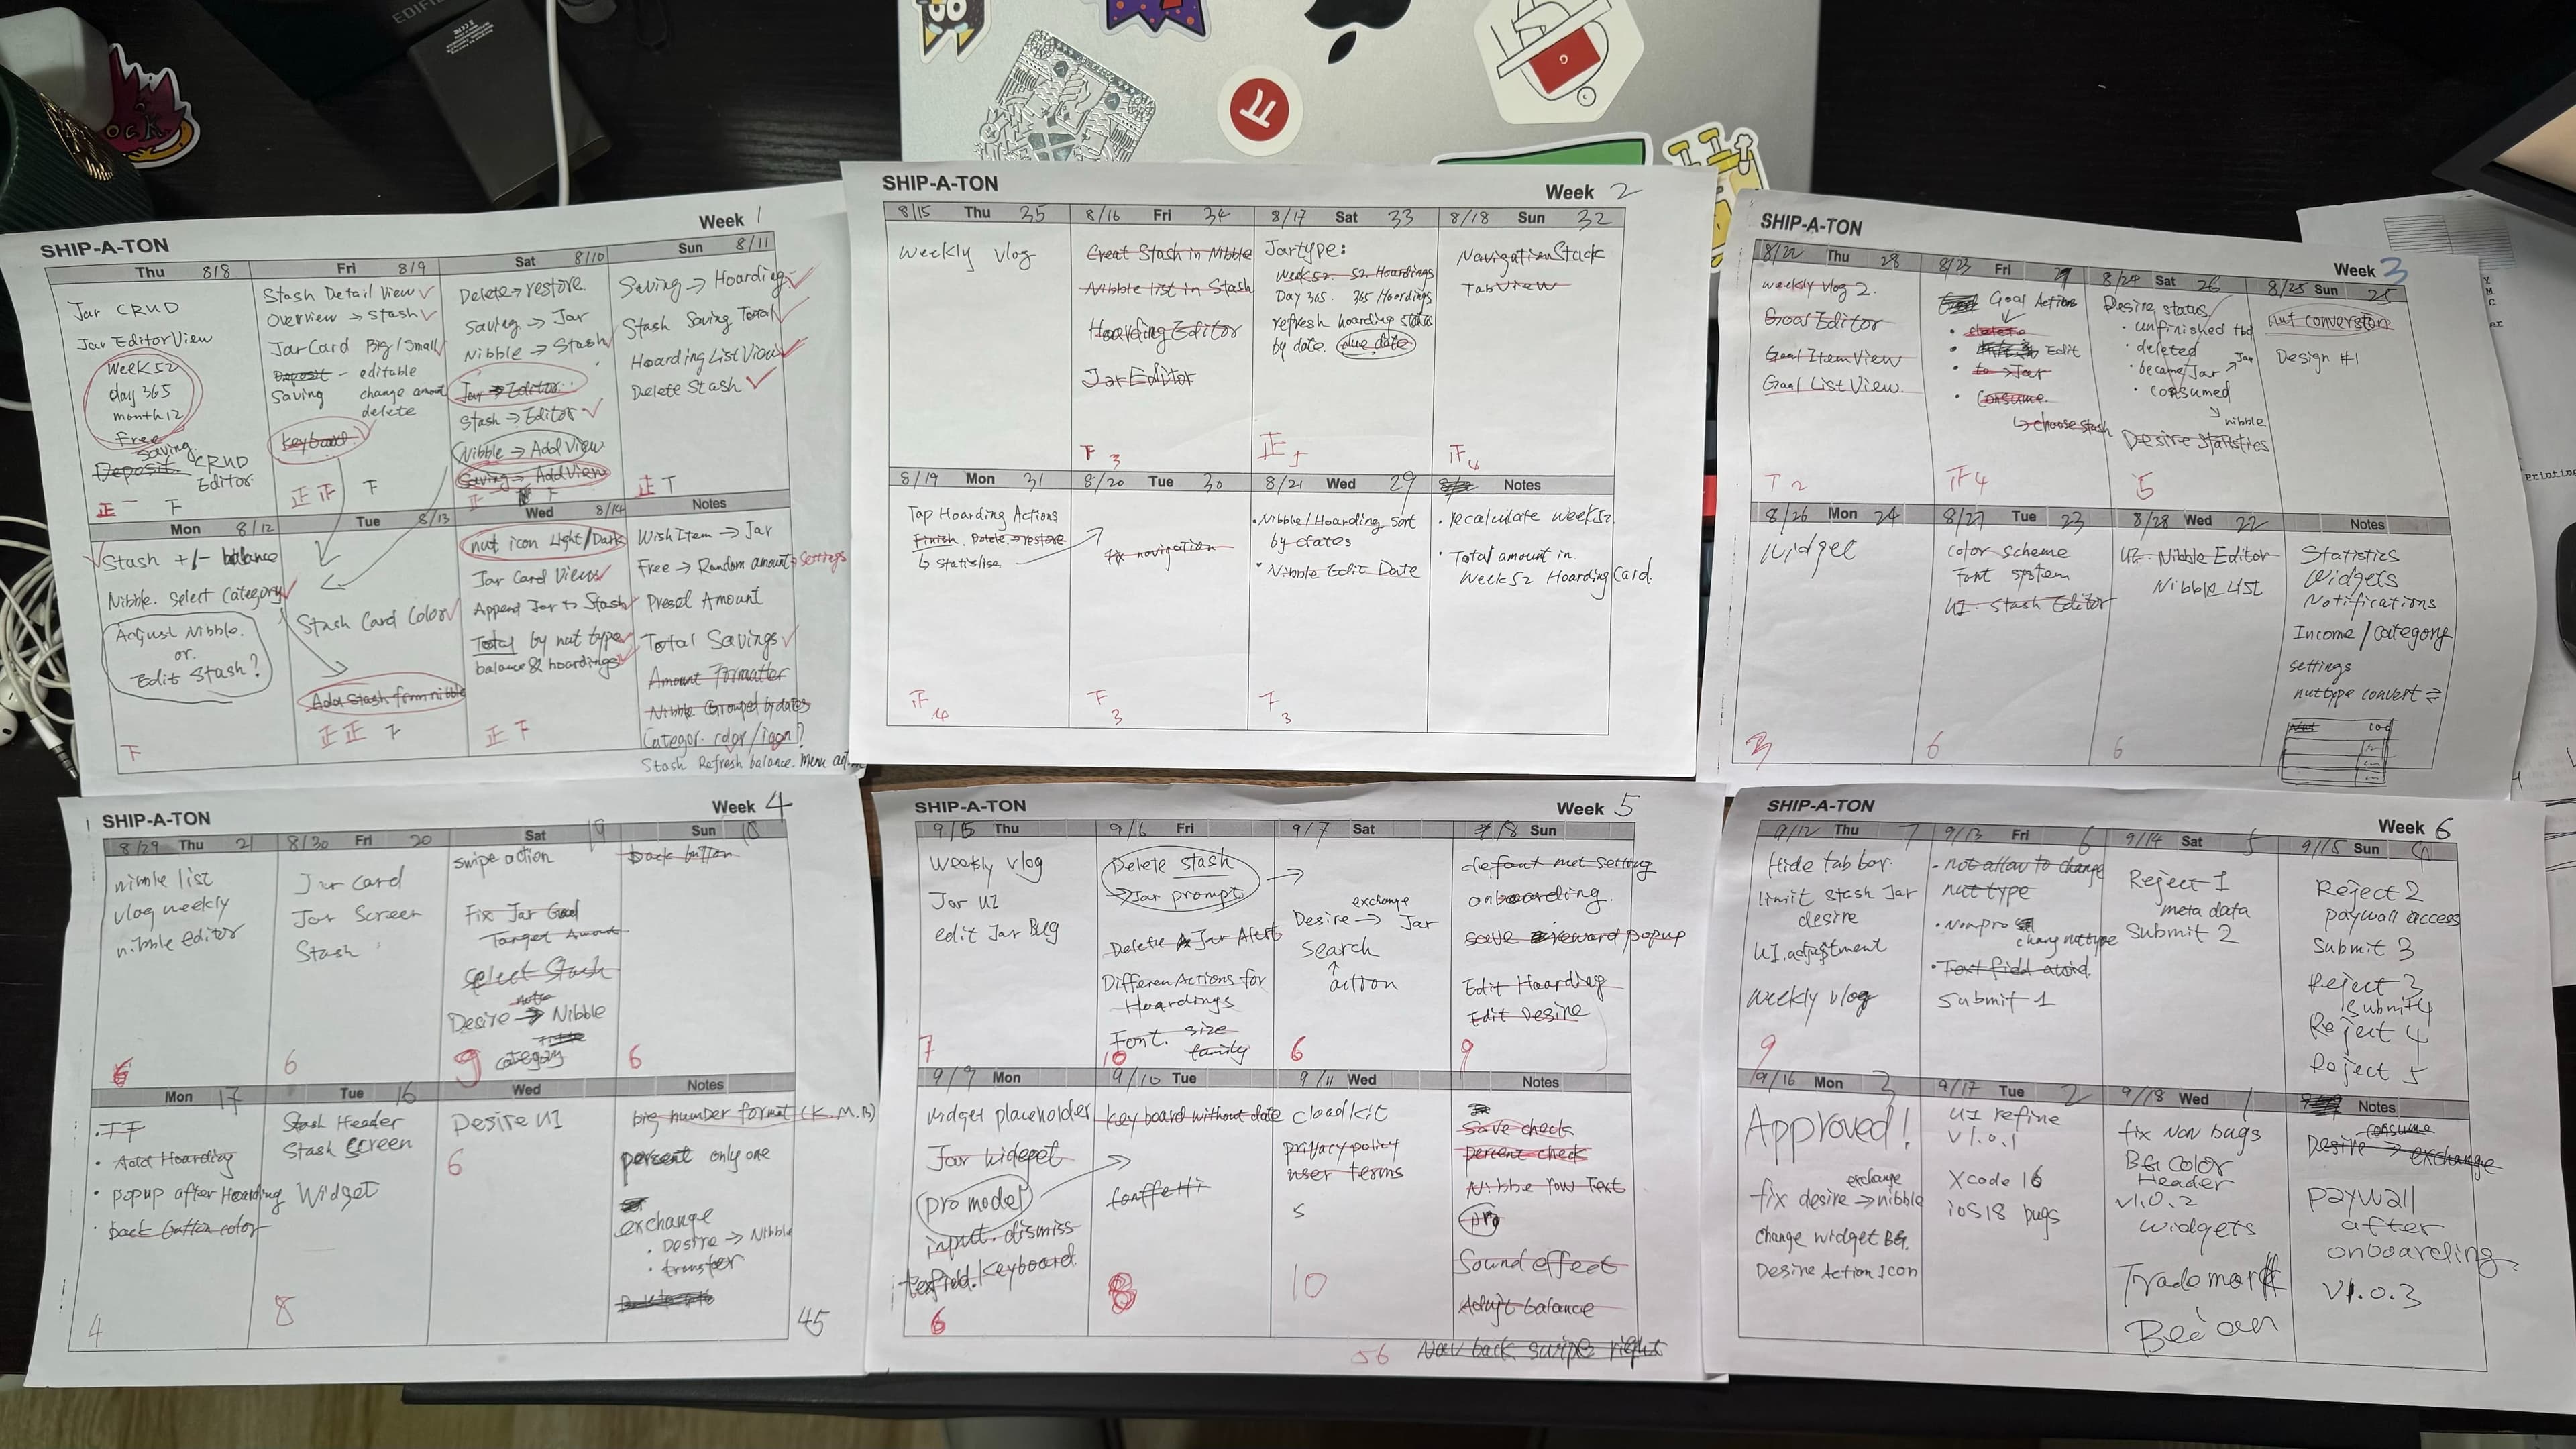 SHIP-A-TON
Week 1
Thu 8/8
Jar CRUD
Jar EditorView
Week 52
day 365
month 12
Free
Saving
Deposit CRUD
Editor
正一 下
Fri 8/9
Stash Detail View
Overview → Stash
JarCard Big/Small
Deposit - editable
Saving change amount
delete
keyboard
正正 下
Sat 8/10
Delete → restore.
Saving → Jar
Nibble → Stash
Jar → Editor
Stash → Editor
Nibble → AddView
Saving → AddView
Sun 8/11
Saving → Hoarding
Stash Saving Total
Hoarding ListView
Delete Stash
正丅
Mon 8/12
Stash +/- balance
Nibble. Select Category
Adjust Nibble.
or.
Edit Stash?
下
Tue 8/13
Stash Card Color
Add Stash form nibble
正正下
Wed 8/14
nut icon Light/Dark
Jar Card Views
Append Jar to Stash
Total by nut type
balance & hoardings
正下
Notes
WishItem → Jar
Free → Random amount → Settings
Preset Amount
Total Savings
Amount Formatter
Nibble Grouped by dates
Categor. color/icon?
Stash Refresh balance. Menu
SHIP-A-TON
Week 2
8/15 Thu 35
Weekly vlog
8/16 Fri 34
Creat Stash in Nibble
Nibble list in Stash
Hoarding Editor
Jar Editor
下 3
8/17 Sat 33
Jartype:
Week52. 52 Hoardings
Day 365. 365 Hoardings
refresh hoarding status
by date. due date
正 5
8/18 Sun 32
NavigationStack
TabView
4
8/19 Mon 31
Tap Hoarding Actions
Finish. Delete → restore
4
8/20 Tue 30
fix navigation
下 3
8/21 Wed 29
• Nibble/Hoarding sort
by dates
• Nibble Edit Date
下 3
Notes
• recalculate week52
• Total amount in
Week52 Hoarding Card.
SHIP-A-TON
Week 3
8/22 Thu 28
weekly vlog 2.
Goal Editor
Goal ItemView
Goal ListView
丅 2
8/23 Fri
Goal Action
• delete
• Edit
• to → Jar
• Consume
↳ choose stash
4
8/24 Sat 26
Desire status
• unfinished tbd
• deleted
• became Jar → Jar
• consumed
nibble
Desire Statistics
5
8/25 Sun 25
nut conversion
Design #1
8/26 Mon 24
Widget
3
8/27 Tue 23
Color scheme
Font system
UI - Stash Editor
6
8/28 Wed 22
UI - Nibble Editor
Nibble List
6
Notes
Statistics
Widgets
Notifications
Income/category
settings
nuttype convert ⇄
SHIP-A-TON
Week 4
8/29 Thu 21
nibble list
vlog weekly
nibble editor
8/30 Fri 20
Jar card
Jar Screen
Stash
6
Sat 19
swipe action
Fix Jar Goal
Target Amount
select Stash
note
Desire → Nibble
category
9
Sun 18
back button
6
Mon 17
• Add Hoarding
• popup after Hoarding
• back button color
4
Tue 16
Stash Header
Stash Screen
Widget
8
Wed
Desire UI
6
Notes
big number format (K.M.B)
percent only one
exchange
• Desire → Nibble
• transfer
45
SHIP-A-TON
Week 5
9/5 Thu
Weekly vlog
Jar UI
edit Jar Bug
7
9/6 Fri
Delete stash
→ Jar prompt
Delete Jar Alert
Differen Actions for
Hoardings
Font. size
family
10
9/7 Sat
exchange
Desire → Jar
search
↑
action
6
9/8 Sun
onboarding.
save reward popup
Edit Hoarding
Edit Desire
9
9/9 Mon
widget placeholder
Jar widget
pro model
input. dismiss
Keyboard
6
9/10 Tue
key board without date
8
9/11 Wed
cloudkit
privacy policy
user terms
10
Notes
Save check
percent check
Nibble row Text
pro
Sound effect
Adujt balance
56 Nav back swipe right
SHIP-A-TON
Week 6
9/12 Thu 7
Hide tab bar.
limit stash Jar
desire
UI. adjustment
Weekly vlog
9
9/13 Fri 6
• not allow to change
nut type
• Nonpro
chang nuttype
• Text field avoid.
Submit 1
9/14 Sat 5
Reject 1
meta data
Submit 2
9/15 Sun 4
Reject 2
paywall access
Submit 3
Reject 3
Submit 4
Reject 4
Reject 5
9/16 Mon 3
Approved!
exchange
fix desire → nibble
change widget BG.
Desire Action Icon
9/17 Tue 2
UI refine
V1.0.1
Xcode 16
iOS18 bugs
9/18 Wed 1
fix Nav bugs
BG Color
Header
V1.0.2
widgets
Notes
consume
Desire → exchange
paywall
after
onboarding
V1.0.3